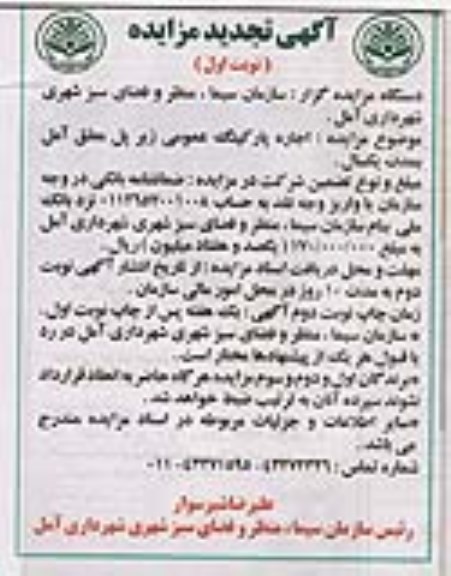 آگهی تجدید مزایده
(نوبت اول)
دستگاه مزایده گزار: سازمان سیما، منظر و فضای سبز شهری
شهرداری آمل.
موضوع مزایده: اجاره پارکینگ عمومی زیر پل معلق آمل
بمدت یکسال.
مبلغ و نوع تضمین شرکت در مزایده: ضمانتنامه بانکی در وجه
سازمان یا واریز وجه نقد به حساب نزد بانک
ملی بنام سازمان سیما، منظر و فضای سبز شهری شهرداری آمل
به مبلغ ۱۷۰/۰۰۰/۰۰۰ (یکصد و هفتاد میلیون) ریال.
مهلت و محل دریافت اسناد مزایده: از تاریخ انتشار آگهی نوبت
دوم به مدت ۱۰ روز در محل امور مالی سازمان.
زمان چاپ نوبت دوم آگهی: یک هفته پس از چاپ نوبت اول.
* سازمان سیما، منظر و فضای سبز شهری شهرداری آمل در رد
یا قبول هر یک از پیشنهادها مختار است.
*برندگان اول و دوم و سوم مزایده هر گاه حاضر به انعقاد قرارداد
نشوند سپرده آنان به ترتیب ضبط خواهد شد.
*سایر اطلاعات و جزئیات مربوطه در اسناد مزایده مندرج
می باشد.
شماره تماس: ۰۱۱-۴۳۳۷۱۵۹۵
علیرضا شیرسوار
رئیس سازمان سیما، منظر و فضای سبز شهری شهرداری آمل